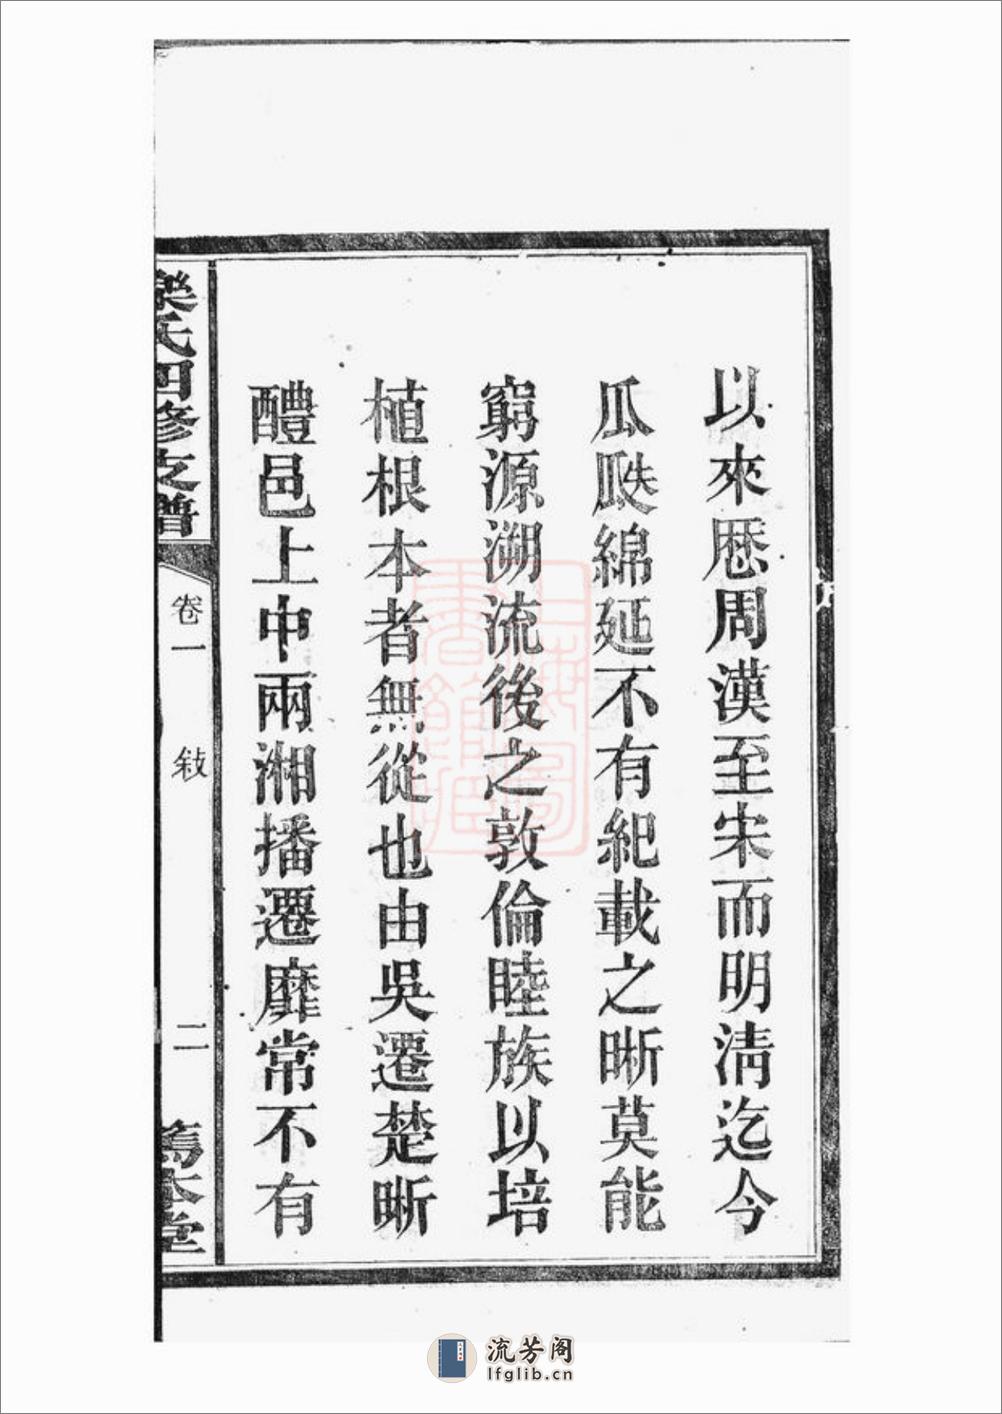 以來厯周漢至宋而明清迄今
瓜瓞綿延不有紀載之晰莫能
窮源溯流後之敦倫睦族以培
植根本者無從也由吳遷楚晰
醴邑上中兩湘播遷靡常不有
氏四修支譜
卷一
敍
二
本堂
流芳阁
lfglib.cn